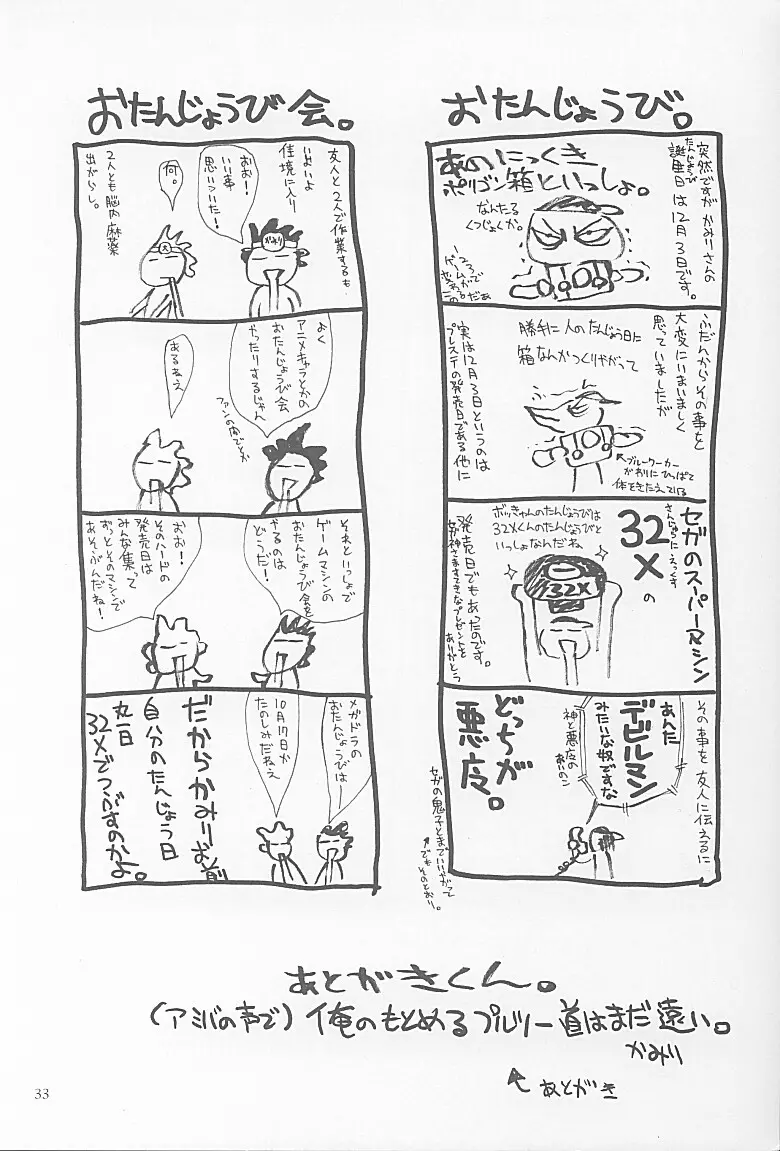 おたんじょうび。
突然ですが かみりさんの
誕生日は12月3日です。
たんじょうび
あのにっくき
ポリゴン箱といっしょ。
なんたる
くつじょくか。
ふだんからその事を
大変にいまいましく
思っていましたが
勝手に人のたんじょう日に
箱なんかつくりやがって
←ブルーワーカー
がわりにひっぱって
体をきたえている
実は12月3日というのは
プレステの発売日である他に
セガのスーパーマシン
さんじゅうにえっくす
32X
の
ボッキゃんのたんじょうびは
32Xくんのたんじょうびと
いっしょなんだね
32X
発売日でもあったのです。
女神さますてきなプレゼントを
ありがとう
その事を友人に伝えるに
あんた
デビルマン
みたいな奴ですな
神と悪魔の
あいのこ
どっちが
悪魔。
セガの鬼子とまでいいやがって
↑でもそのとおり。
おたんじょうび会。
友人と2人で作業するも
いよいよ
佳境に入り
おお!
いい事
思いついた!
かみり
何。
2人とも脳内麻薬
出がらし。
よく
アニメキャラとかの
おたんじょうび会
やったりするじゃん
ファンの間でとか
あるねえ
それといっしょで
ゲームマシンの
おたんじょうび会を
やるのは
どうだ!
おお!
そのハードの
発売日は
みんな集って
ずっとそのマシンで
あそぶんだね!
メガドラの
おたんじょうびは
10月17日が
たのしみだねえ
だからかみりお前
自分のたんじょう日
丸一日
32Xでつぶすのかよ。
あとがきくん。
(アミバの声で)俺のもとめるプルツー道はまだ遠い。
かみり
↖あとがき
33